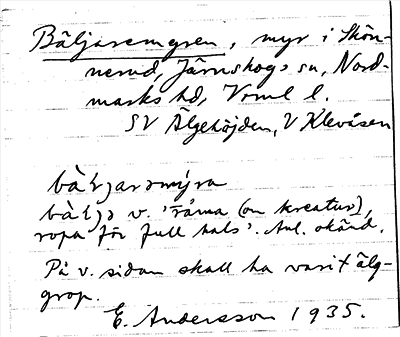 Bäljaremyren, myr i Skön-
nerud, Järnskogs sn, Nord-
marks hd, Vrml l.
SV Älgehöjden, V Klevåsen
råma (om kreatur),
ropa för full hals'. Anl. okänd.
På v. sidan skall ha varit älg-
grop.
E. Andersson 1935.